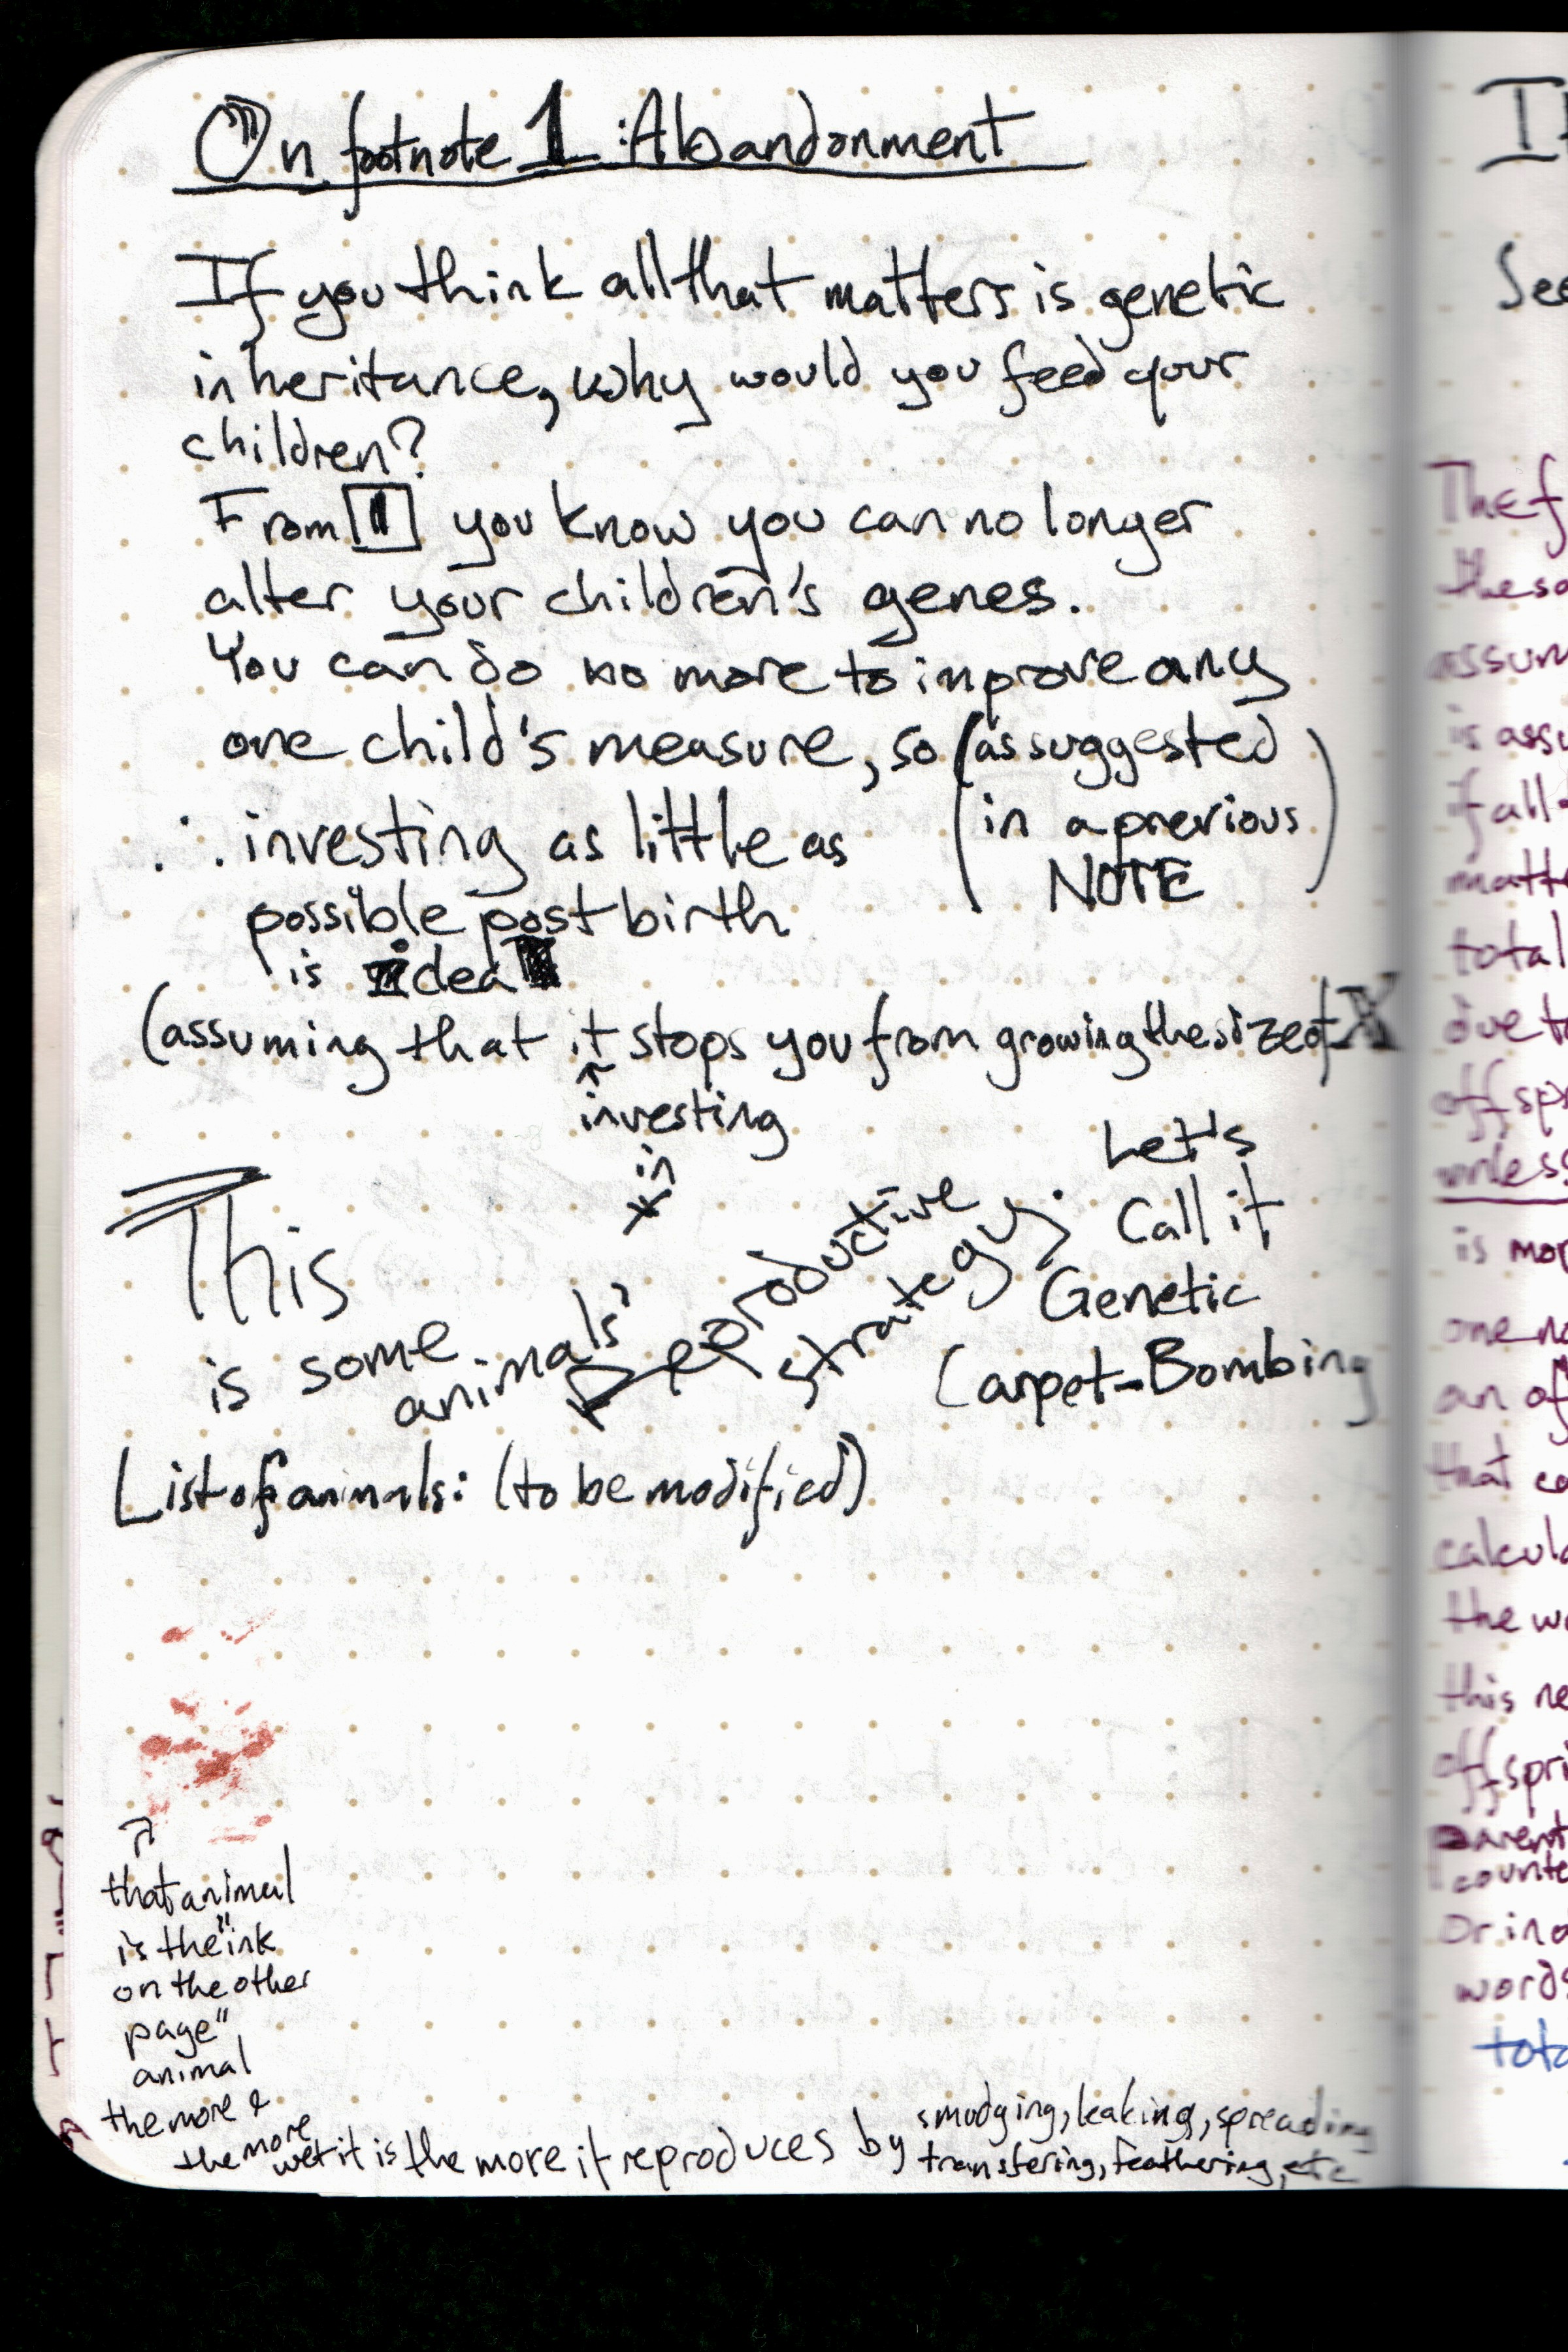 On footnote 1 : Abandonment
If you think all that matters is genetic
inheritance, why would you feed your
children?
From 1 you know you can no longer
alter your children's genes.
You can do no more to improve any
one child's measure, so (as suggested
in a previous
NOTE)
∴ investing as little as
possible post birth
is ideal
(assuming that it stops you from growing the size of X
↑
investing
in
x
This
is some
animals'
Reproductive
strategy.
Let's
Call it
Genetic
Carpet-Bombing
List of animals: (to be modified)
that animal
is the "ink
on the other
page"
animal
the more &
the more
wet it is the more it reproduces by smudging, leaking, spreading
transfering, feathering, etc
See
The f
these
assum
is assu
if all
matte
total
due to
offspr
unless
is mor
one
an of
that co
calcula
the
this
offspri
parent
counte
Or in
words
tota